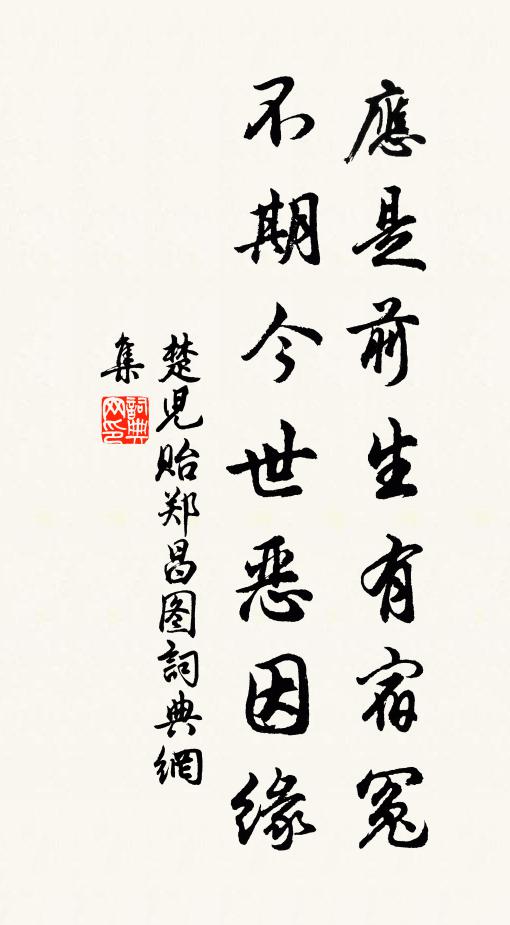 應是前生有宿冤
不期今世恶因緣
楚児贻郑昌图詞典網
集
詞典網印